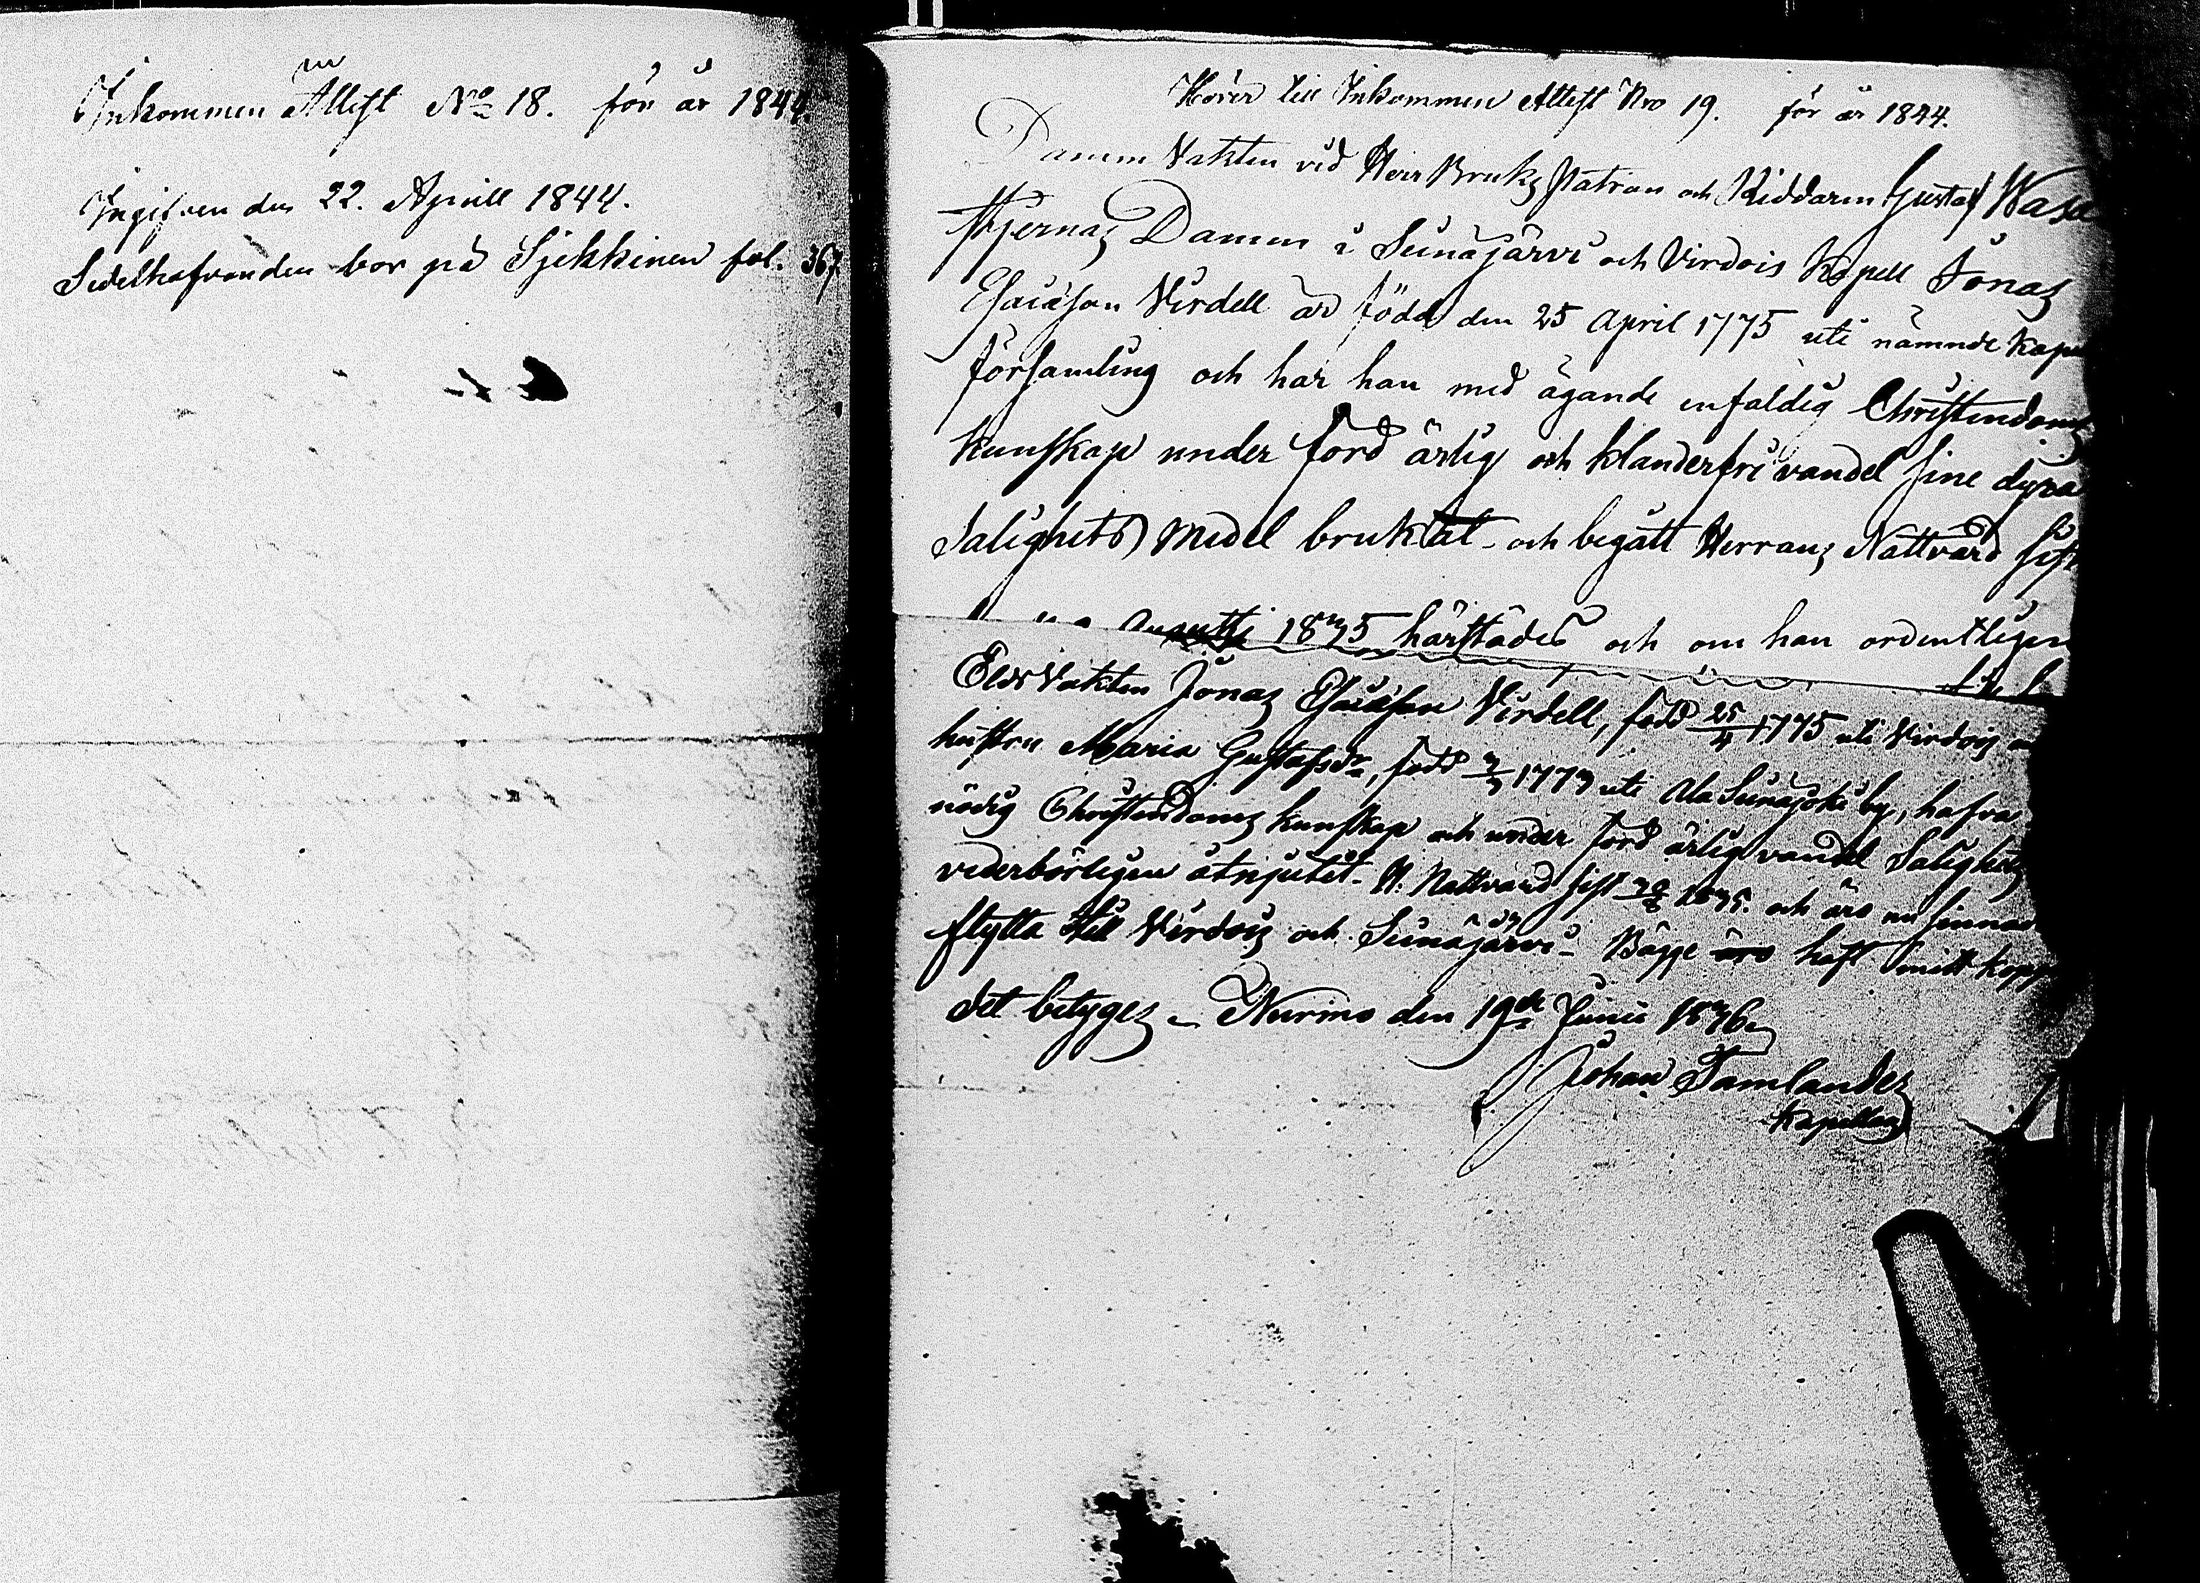 Inkommen Attest No 18. för år 1844.
Ingifven den 22. Aprill 1844.
Sedelhafvanden bor på Sjekkinen fol. 367
Hörer till Inkommen Attest Nro 19. för år 1844.
Damm Vakten vid Herr Bruks Patron och Riddaren Gustaf Wasa
stjernas Damm i Seinäjärvi och Virdois Kapell Jonas
Esaiasson Virdell är född den 25 April 1775 uti nämnde Kape
församling och har han med ägande enfaldig Christendoms
kunskap under förd ärlig och klanderfri vandel sine dyra
Salighets medel bruktat och begått Herrans Nattvard sist
Augusti 1835 härstädes och om han ordentligen
Eldvakten Jonas Esaiasson Virdell, född 25/4 1775 uti Virdois
hustru Maria Gustafsdr, född 3/3 1773 uti Ala Seinäjoki by, hafva
nödig Christendoms kunskap och under förd ärlig vandel Salighets
vederbörligen åtnjutit. H. Nattvard sist 30/8 1835. och äro nu sinnad
flytta till Virdois och Seinäjärvi Bägge äro haft mitt kopp
det betyges Nurmo den 19de Junii 1836
Johan Tamlander
Kapellan